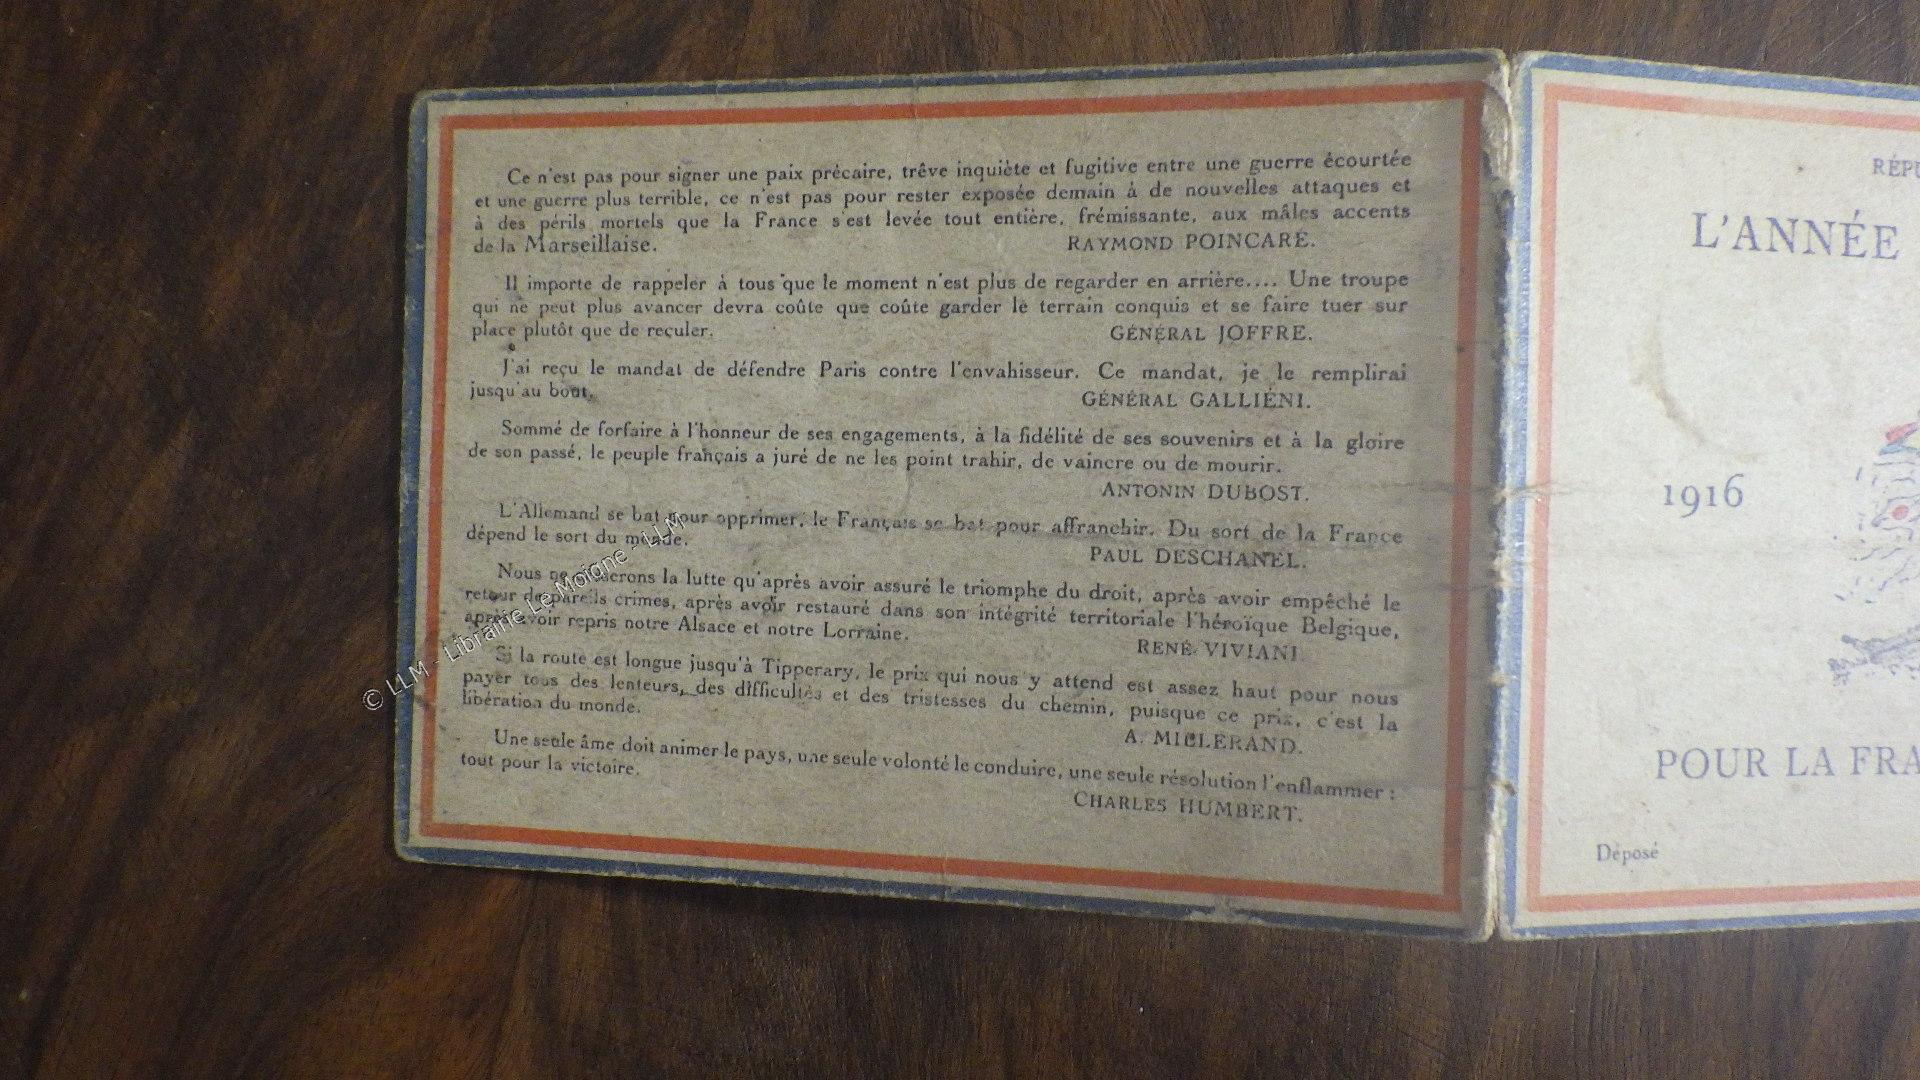 Ce n'est pas pour signer une paix précaire, trêve inquiète et fugitive entre une guerre écourtée
et une guerre plus terrible, ce n'est pas pour rester exposée demain à de nouvelles attaques et
à des périls mortels que la France s'est levée tout entière, frémissante, aux mâles accents
de la Marseillaise. RAYMOND POINCARÉ.
Il importe de rappeler à tous que le moment n'est plus de regarder en arrière.... Une troupe
qui ne peut plus avancer devra coûte que coûte garder le terrain conquis et se faire tuer sur
place plutôt que de reculer. GÉNÉRAL JOFFRE.
J'ai reçu le mandat de défendre Paris contre l'envahisseur. Ce mandat, je le remplirai
jusqu'au bout. GÉNÉRAL GALLIÉNI.
Sommé de forfaire à l'honneur de ses engagements, à la fidélité de ses souvenirs et à la gloire
de son passé, le peuple français a juré de ne les point trahir, de vaincre ou de mourir.
ANTONIN DUBOST.
L'Allemand se bat pour opprimer, le Français se bat pour affranchir. Du sort de la France
dépend le sort du monde. PAUL DESCHANEL.
Nous ne cesserons la lutte qu'après avoir assuré le triomphe du droit, après avoir empêché le
retour de pareils crimes, après avoir restauré dans son intégrité territoriale l'héroïque Belgique,
après avoir repris notre Alsace et notre Lorraine. RENÉ VIVIANI
Si la route est longue jusqu'à Tipperary, le prix qui nous y attend est assez haut pour nous
payer tous des lenteurs, des difficultés et des tristesses du chemin, puisque ce prix, c'est la
libération du monde. A. MILLERAND.
Une seule âme doit animer le pays, une seule volonté le conduire, une seule résolution l'enflammer :
tout pour la victoire. CHARLES HUMBERT.
RÉPU
L'ANNÉE
1916
POUR LA FRA
Déposé
© LLM - Librairie Le Moigne - LLM